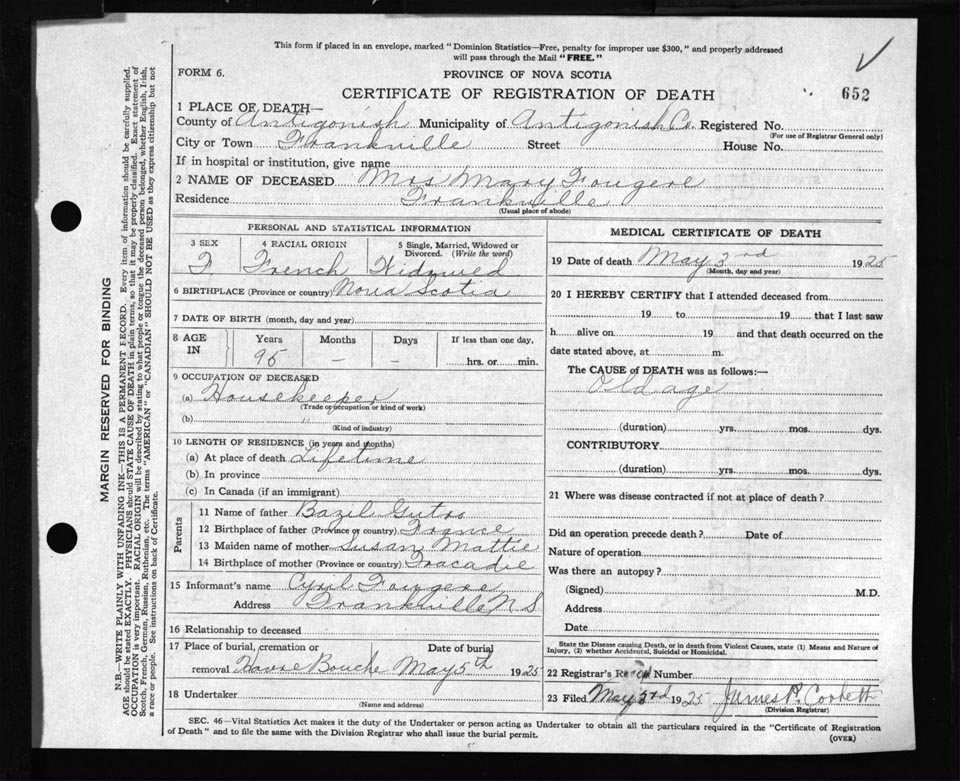 This form if placed in an envelope, marked "Dominion Statistics—Free, penalty for improper use $300," and properly addressed
will pass through the Mail "FREE."
FORM 6.
PROVINCE OF NOVA SCOTIA
652
CERTIFICATE OF REGISTRATION OF DEATH
1 PLACE OF DEATH—
County of Antigonish Municipality of Antigonish Co. Registered No.
(For use of Registrar General only)
City or Town Frankville Street House No.
If in hospital or institution, give name
2 NAME OF DECEASED Mrs Mary Fougere
Residence Frankville
(Usual place of abode)
PERSONAL AND STATISTICAL INFORMATION
3 SEX 4 RACIAL ORIGIN 5 Single, Married, Widowed or
Divorced. (Write the word)
F French Widowed
6 BIRTHPLACE (Province or country) Nova Scotia
7 DATE OF BIRTH (month, day and year)
8 AGE IN Years Months Days If less than one day,
95 — — hrs. or min.
9 OCCUPATION OF DECEASED
(a) Housekeeper
(Trade or occupation or kind of work)
(b) "
(Kind of industry)
10 LENGTH OF RESIDENCE (in years and months)
(a) At place of death Lifetime
(b) In province
(c) In Canada (if an immigrant)
Parents
11 Name of father Bazil Gutro
12 Birthplace of father (Province or country) France
13 Maiden name of mother Susan Mattie
14 Birthplace of mother (Province or country) Tracadie
15 Informant's name Cyril Fougere
Address Frankville N S
16 Relationship to deceased
17 Place of burial, cremation or Date of burial
removal Havre Bouche May 5th 1925
18 Undertaker
(Name and address)
MEDICAL CERTIFICATE OF DEATH
19 Date of death May 3rd 1925
(Month, day and year)
20 I HEREBY CERTIFY that I attended deceased from
19 to 19 that I last saw
h alive on 19 and that death occurred on the
date stated above, at m.
The CAUSE of DEATH was as follows:—
Old age
(duration) yrs. mos. dys.
CONTRIBUTORY
(duration) yrs. mos. dys.
21 Where was disease contracted if not at place of death?
Did an operation precede death? Date of
Nature of operation
Was there an autopsy?
(Signed) M.D.
Address
Date
State the Disease causing Death, or in death from Violent Causes, state (1) Means and Nature of
Injury, (2) whether Accidental, Suicidal or Homicidal.
22 Registrar's Record Number
23 Filed May 3rd 1925 James P. Corbett
(Division Registrar)
SEC. 46—Vital Statistics Act makes it the duty of the Undertaker or person acting as Undertaker to obtain all the particulars required in the "Certificate of Registration
of Death" and to file the same with the Division Registrar who shall issue the burial permit.
(OVER)
MARGIN RESERVED FOR BINDING
N.B.—WRITE PLAINLY WITH UNFADING INK—THIS IS A PERMANENT RECORD. Every item of information should be carefully supplied.
AGE should be stated EXACTLY. PHYSICIANS should STATE CAUSE OF DEATH in plain terms, so that it may be properly classified. Exact statement of
OCCUPATION is very important. RACIAL ORIGIN will be described by stating to what people or tongue the deceased person belonged, whether English, Irish,
Scotch, French, German, Russian, Ruthenian, etc. The terms "AMERICAN" or "CANADIAN" SHOULD NOT BE USED as they express citizenship but not
a race or people. See instructions on back of Certificate.